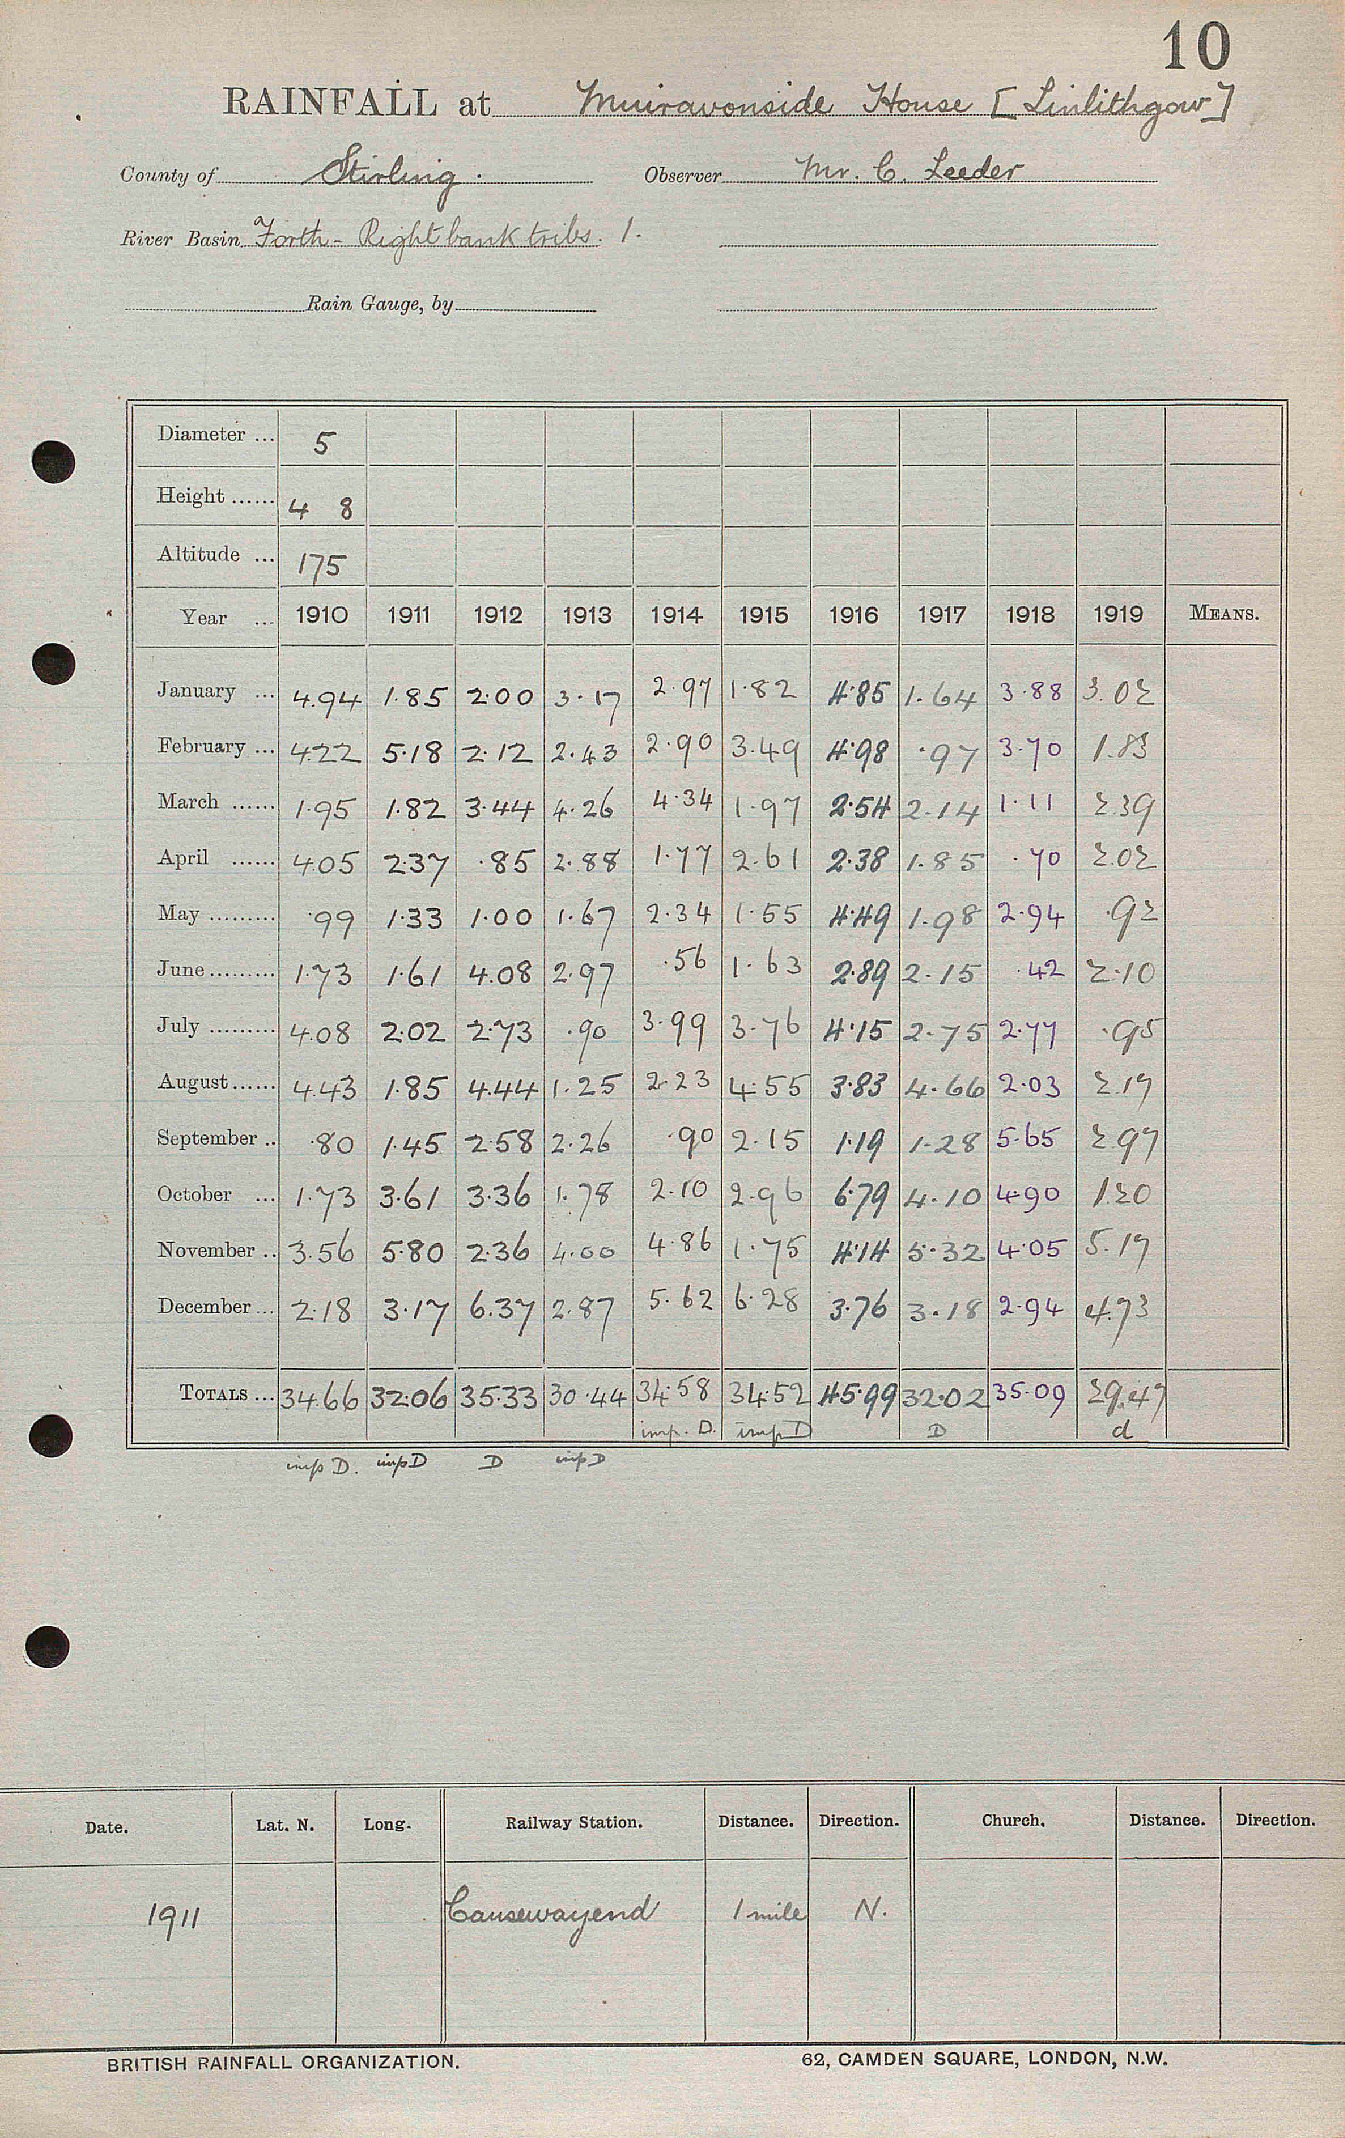 10
RAINFALL at Muiravonside House [Linlithgow]
County of Stirling. Observer Mr. C. Leeder
River Basin Forth - Right bank tribs. 1.
Rain Gauge, by
Diameter ... 5
Height ...... 4 8
Altitude ... 175
Year ... 1910 1911 1912 1913 1914 1915 1916 1917 1918 1919 MEANS.
January ... 4.94 1.85 2.00 3.17 2.97 1.82 4.85 1.64 3.88 3.02
February ... 4.22 5.18 2.12 2.43 2.90 3.49 4.98 .97 3.70 1.83
March ...... 1.95 1.82 3.44 4.26 4.34 1.97 2.54 2.14 1.11 2.39
April ...... 4.05 2.37 .85 2.88 1.77 2.61 2.38 1.85 .70 2.02
May ......... .99 1.33 1.00 1.67 2.34 1.55 4.49 1.98 2.94 .92
June ......... 1.73 1.61 4.08 2.97 .56 1.63 2.89 2.15 .42 2.10
July ......... 4.08 2.02 2.73 .90 3.99 3.76 4.15 2.75 2.77 .95
August ...... 4.43 1.85 4.44 1.25 2.23 4.55 3.83 4.66 2.03 2.19
September .. .80 1.45 2.58 2.26 .90 2.15 1.19 1.28 5.65 2.97
October ... 1.73 3.61 3.36 1.78 2.10 2.96 6.79 4.10 4.90 1.20
November .. 3.56 5.80 2.36 4.00 4.86 1.75 4.14 5.32 4.05 5.17
December ... 2.18 3.17 6.37 2.87 5.62 6.28 3.76 3.18 2.94 4.73
TOTALS ... 34.66 32.06 35.33 30.44 34.58 34.52 45.99 32.02 35.09 29.47
imp. D. imp D D d
imp D. imp D D imp D
Date. Lat. N. Long. Railway Station. Distance. Direction. Church. Distance. Direction.
1911 Causewayend 1 mile N.
BRITISH RAINFALL ORGANIZATION. 62, CAMDEN SQUARE, LONDON, N.W.